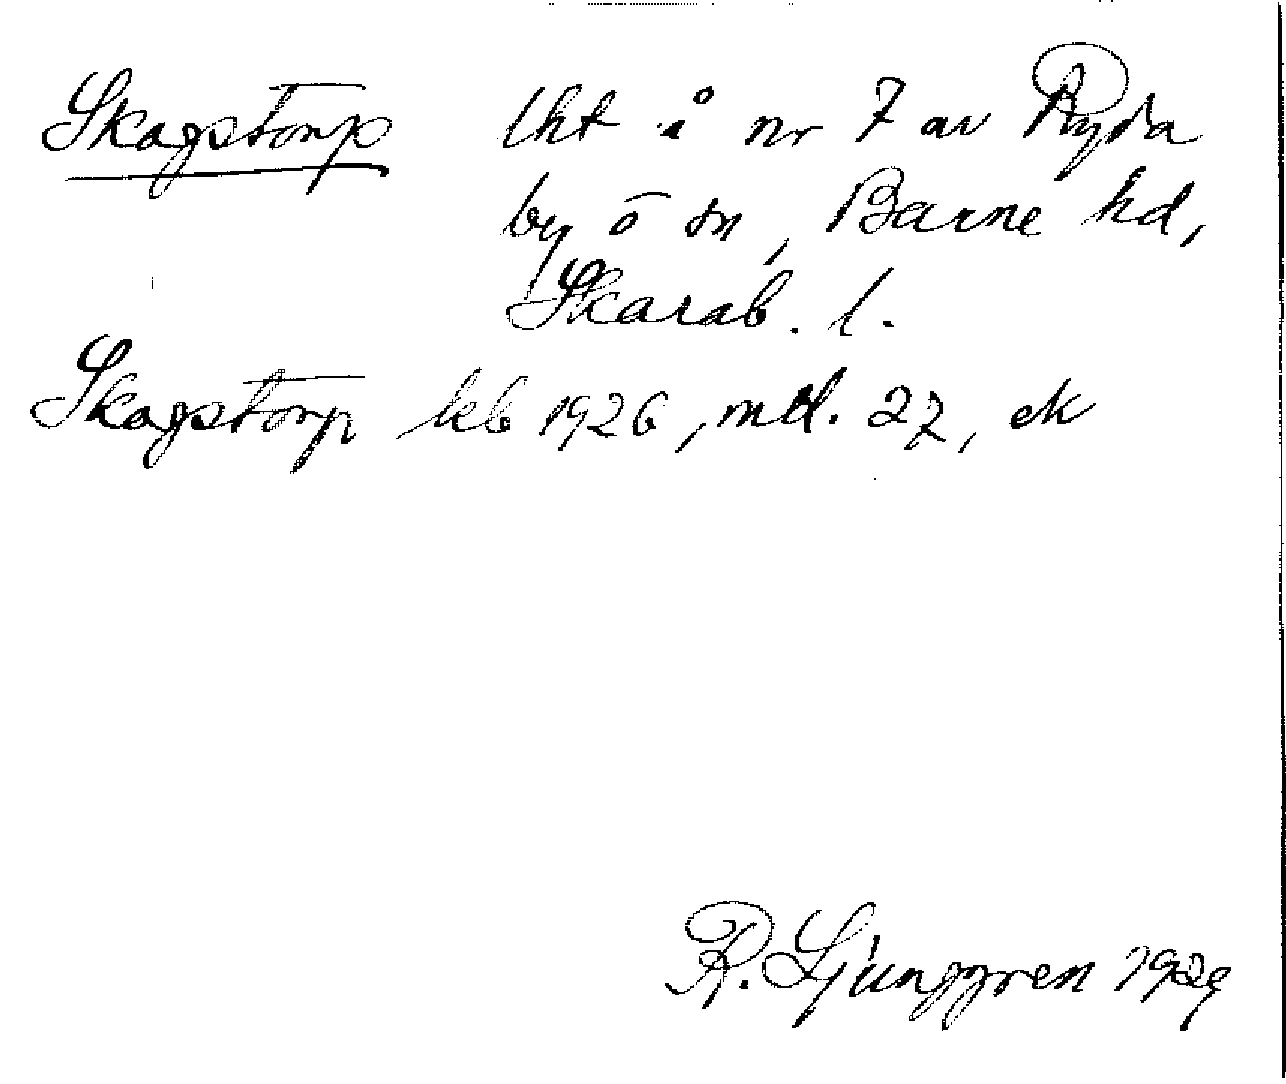 Skogstorp lht å nr 7 av Ryda
by o sn, Barne hd,
Skarab. l.
Skogstorp kb 1926, mtl. 27, ek
R. Ljunggren 1929